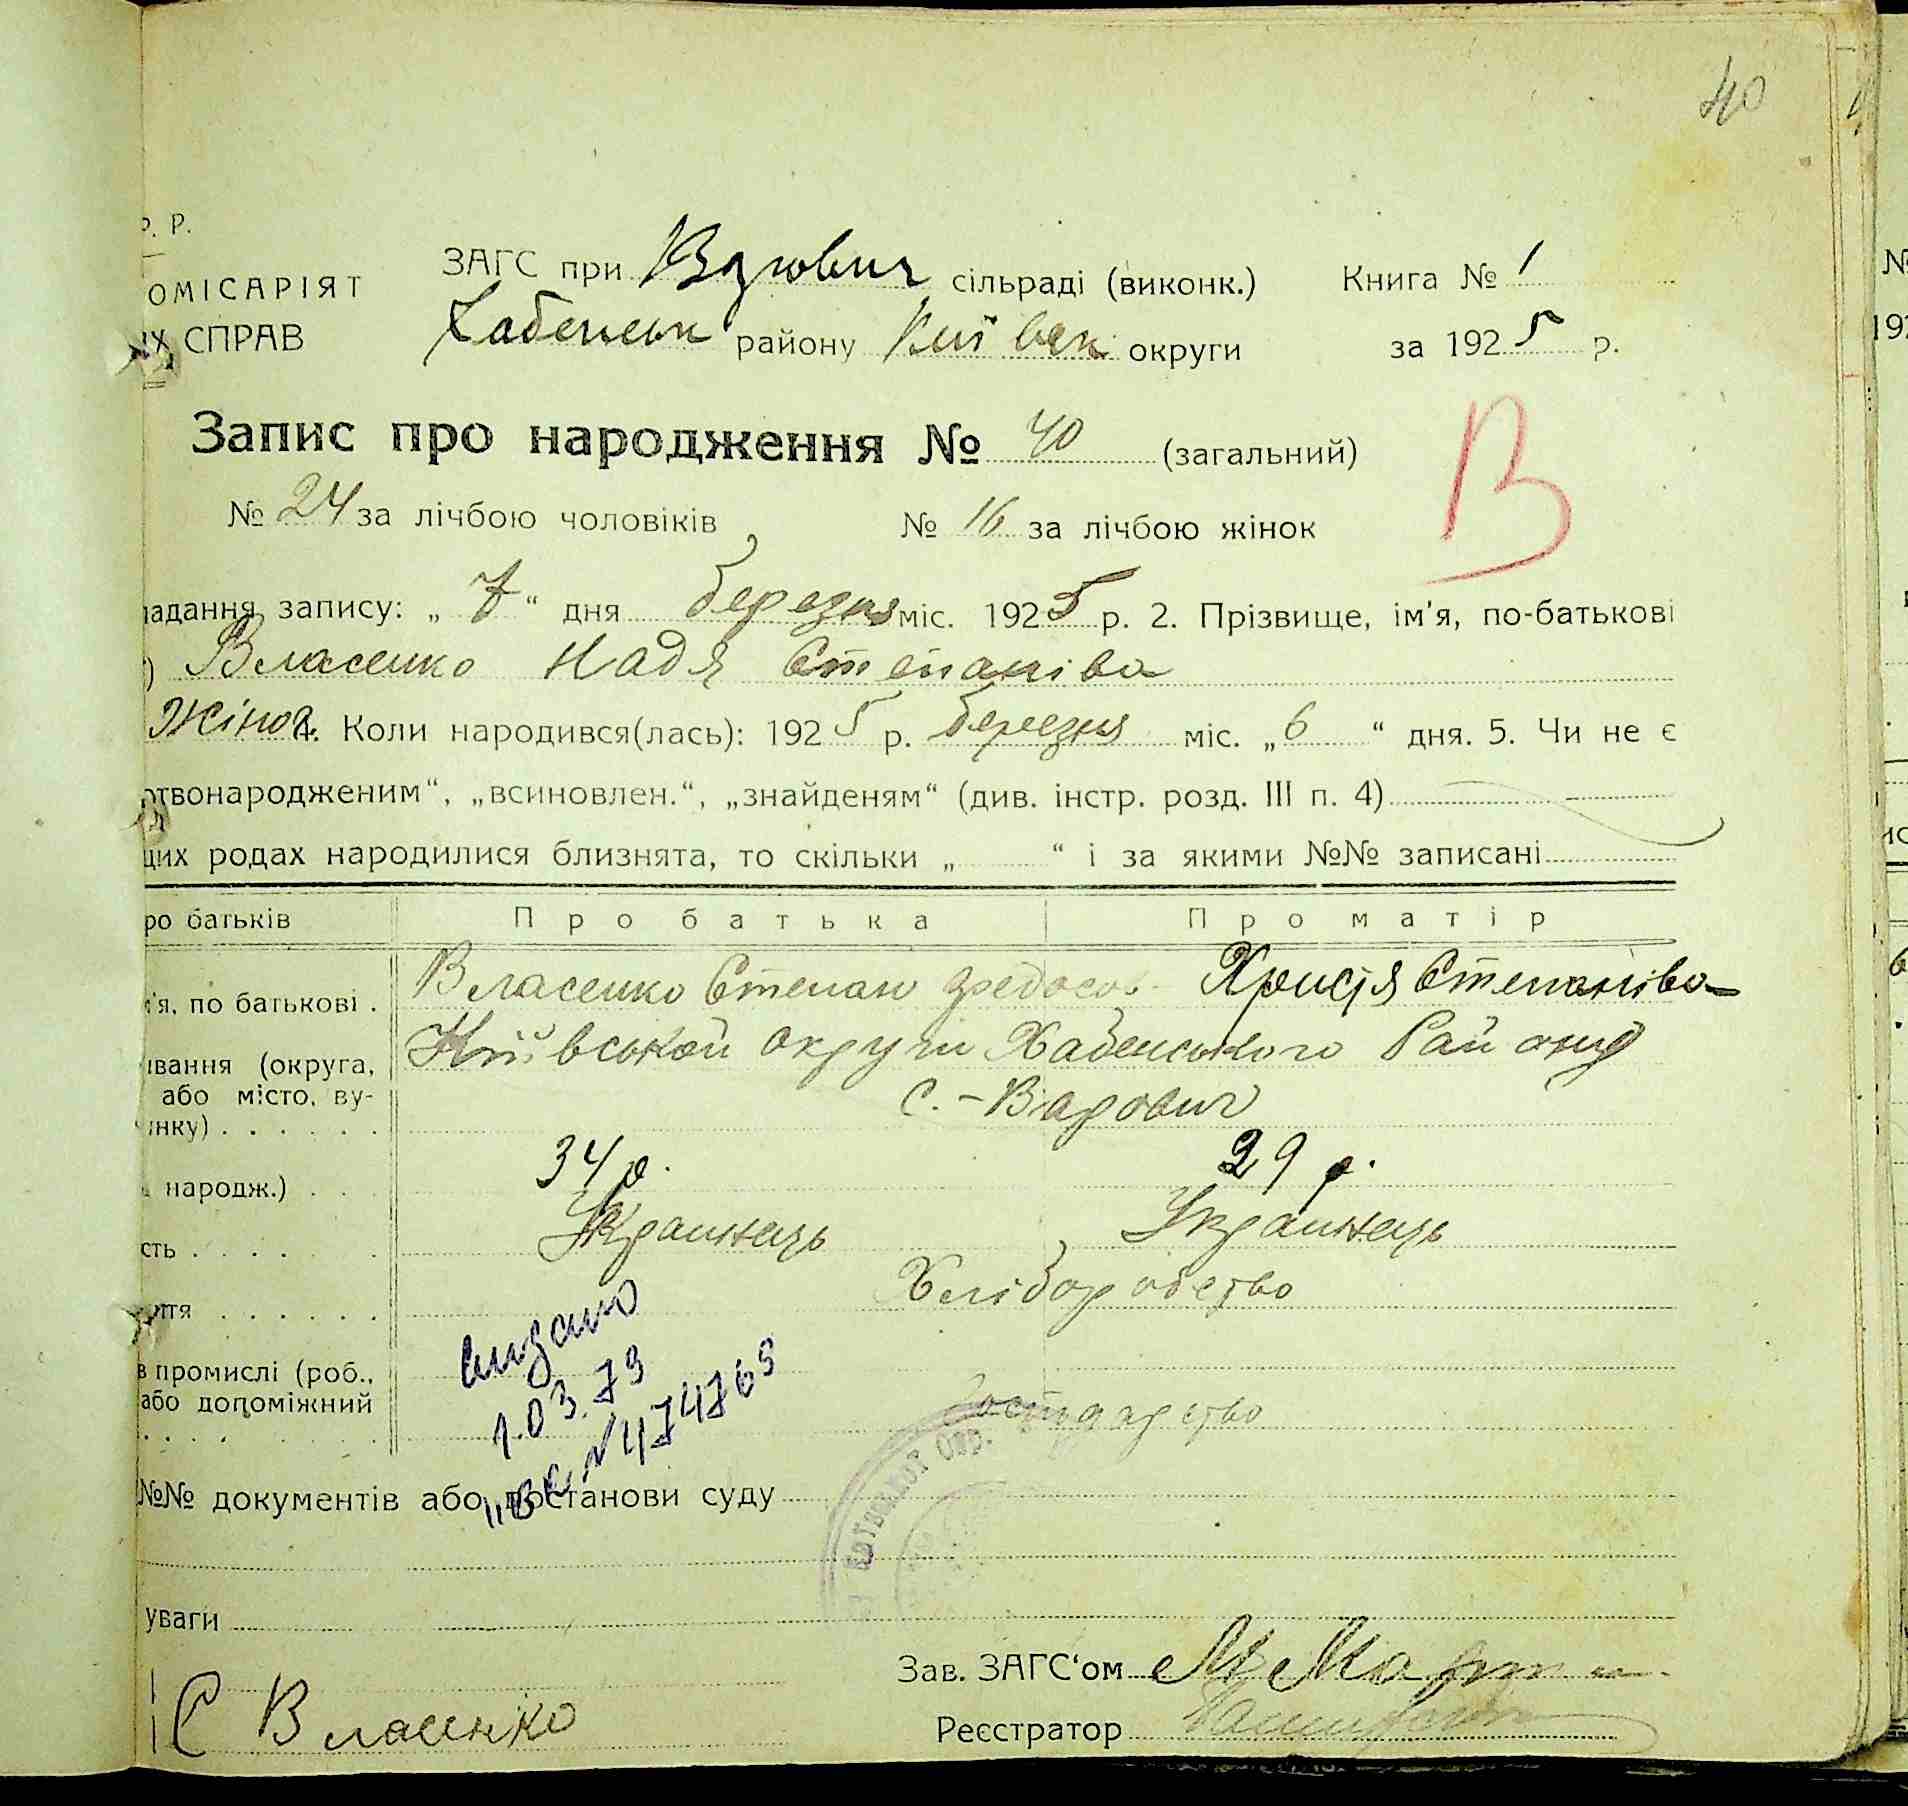 40
Р. Р.
ОМІСАРІЯТ
ИХ СПРАВ
ЗАГС при Вдович сільраді (виконк.) Книга № 1
Хабенськ району Київськ округи за 1925 р.
Запис про народження № 40 (загальний)
В
№ 24 за лічбою чоловіків № 16 за лічбою жінок
ладання запису: „ 7 “ дня березня міс. 1925 р. 2. Прізвище, ім'я, по-батькові
) Власенко Надя Степанівa
Жіноч. 4. Коли народився(лась): 1925 р. березня міс. „6 “ дня. 5. Чи не є
ртвонародженим“, „всиновлен.“, „знайденям“ (див. інстр. розд. III п. 4)
цих родах народилися близнята, то скільки „ “ і за якими №№ записані
ро батьків Про батька Про матір
м'я, по батькові . Власенко Степан Федосов. Христя Степанівa
ування (округа, Київської округи Хабенського Району
або місто, ву-
инку) . . . . . . с. - Варович
народж.) . . 34 р. 29 р.
сть . . . . . Українець Українець
ття . . . . . . Хліборобство
в промислі (роб.,
або допоміжний
. . . . . Господарство
видано
1.03.73
№ 474769
КИЇВСЬКОЇ ОКР.
№№ документів або постанови суду
уваги
Зав. ЗАГС‘ом
С Власенко
Реєстратор